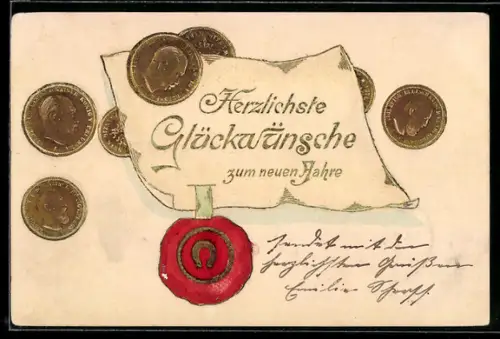 Herzlichste
Glückwünsche
zum neuen Jahre
sendet mit den
herzlichsten Grüßen
Emilie